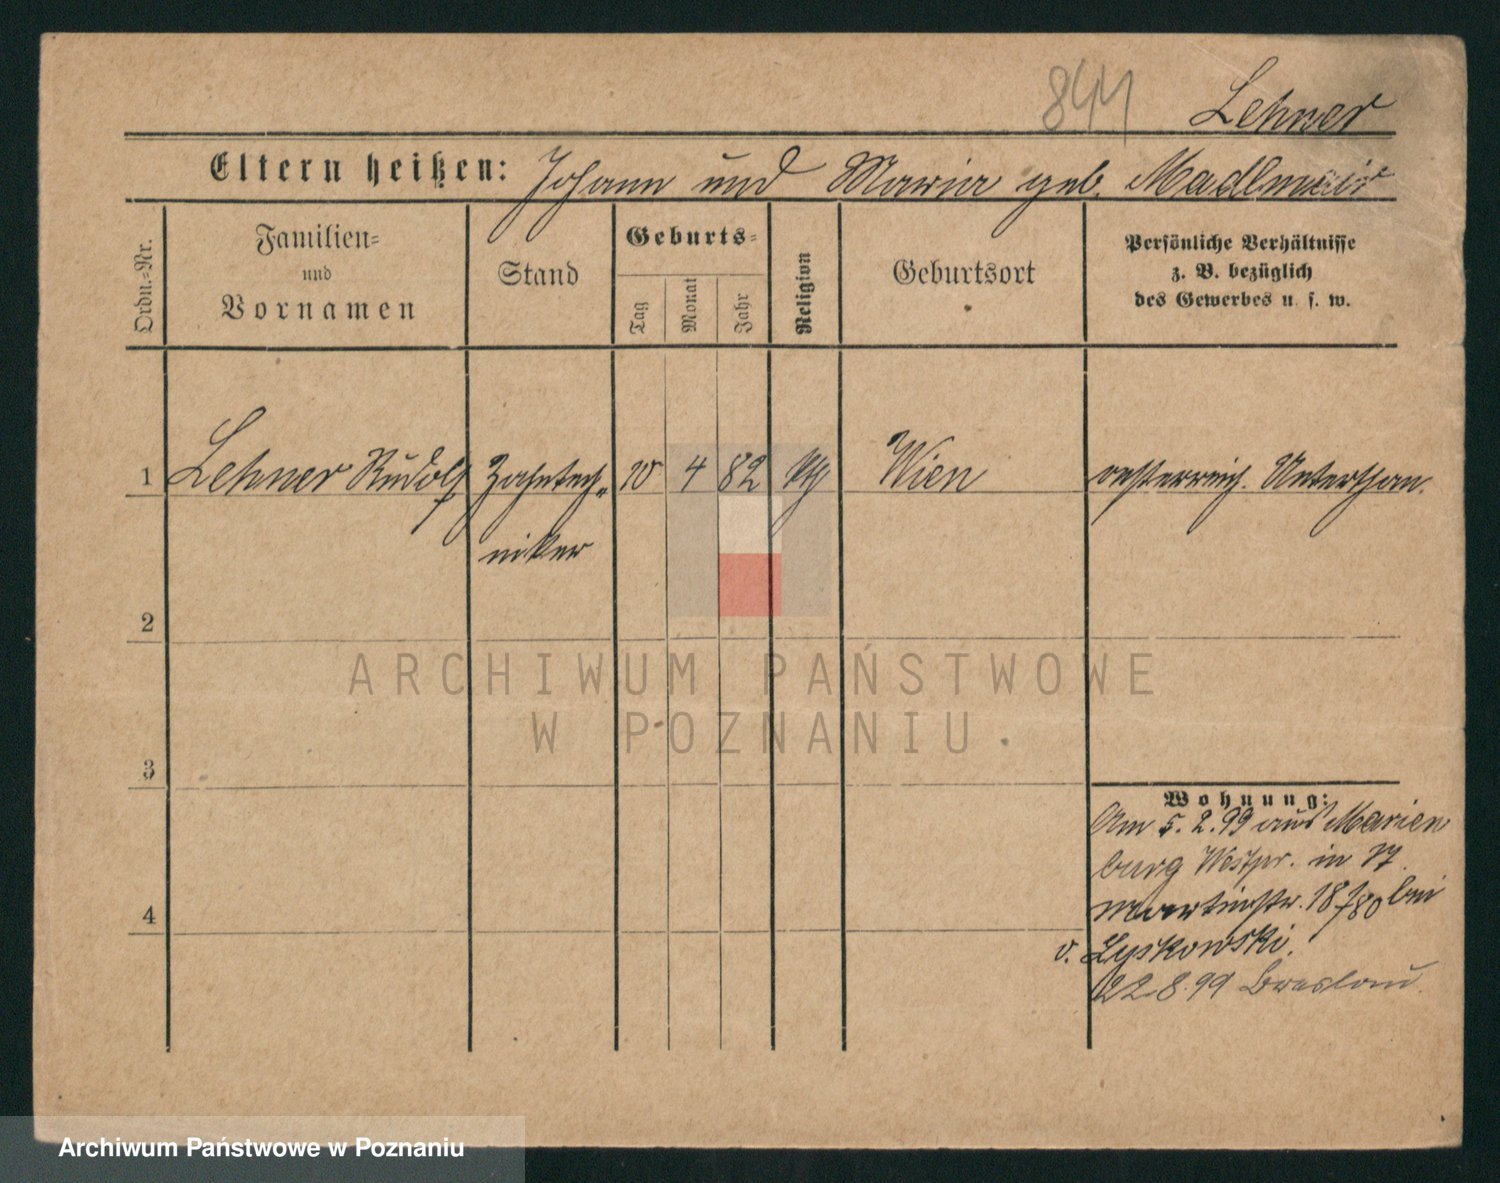 844 Lehner
Eltern heißen: Johann und Maria geb. Madlmair
Ordn.=Nr.
Familien=
und
Vornamen
Stand
Geburts=
Tag
Monat
Jahr
Religion
Geburtsort
Persönliche Verhältnisse
z. B. bezüglich
des Gewerbes u. s. w.
1 Lehner Rudolf Zahntech= 10 4 82 kth Wien oesterreich. Unterthan.
niker
2
ARCHIWUM PAŃSTWOWE
W POZNANIU
3
Wohnung:
Am 5.2.99 aus Marien
burg Westpr. in
4
Martinstr. 18 bei
v. Lyskowski.
22.8.99 Breslau.
Archiwum Państwowe w Poznaniu